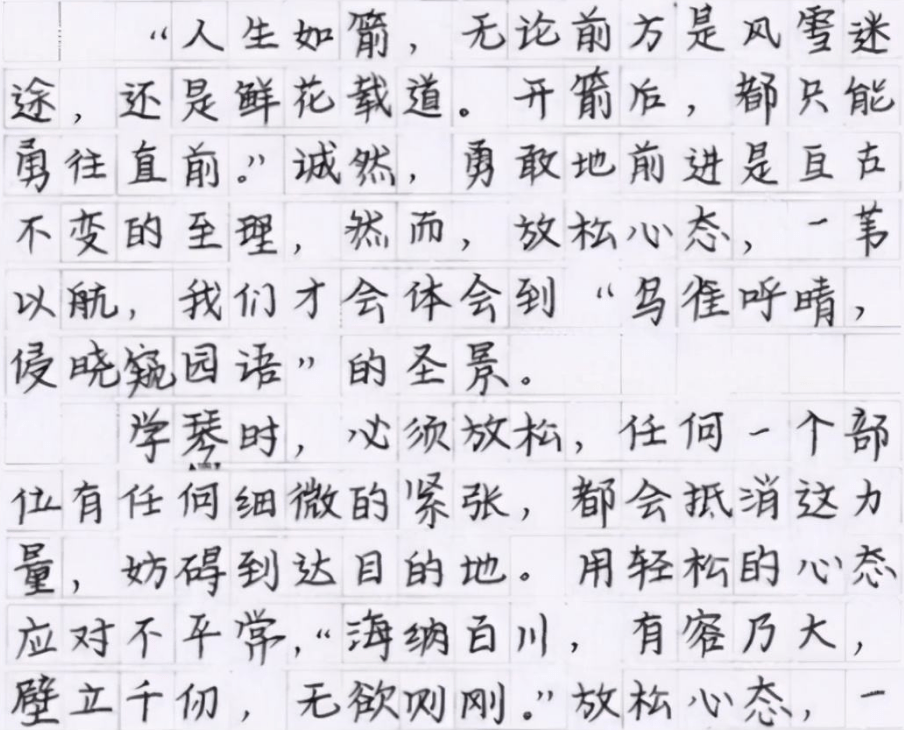 “人生如箭，无论前方是风雪迷
途，还是鲜花载道。开箭后，都只能
勇往直前。”诚然，勇敢地前进是亘古
不变的至理，然而，放松心态，一苇
以航，我们才会体会到“鸟雀呼晴，
侵晓窥园语”的圣景。
学琴时，必须放松，任何一个部
位有任何细微的紧张，都会抵消这力
量，妨碍到达目的地。用轻松的心态
应对不平常，“海纳百川，有容乃大，
壁立千仞，无欲则刚。”放松心态，一